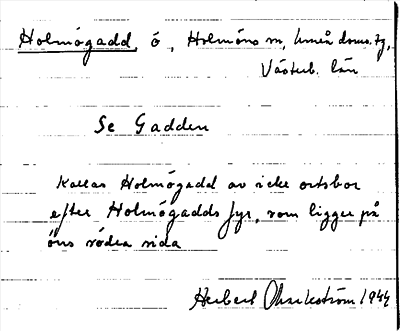 Holmögadd, ö, Holmöns sn, Umeå doms. tg,
Västerb. län
Se Gadden
Kallas Holmögadd av icke ortsbor
efter Holmögadds fyr, som ligger på
öns södra sida
Herbert 1944